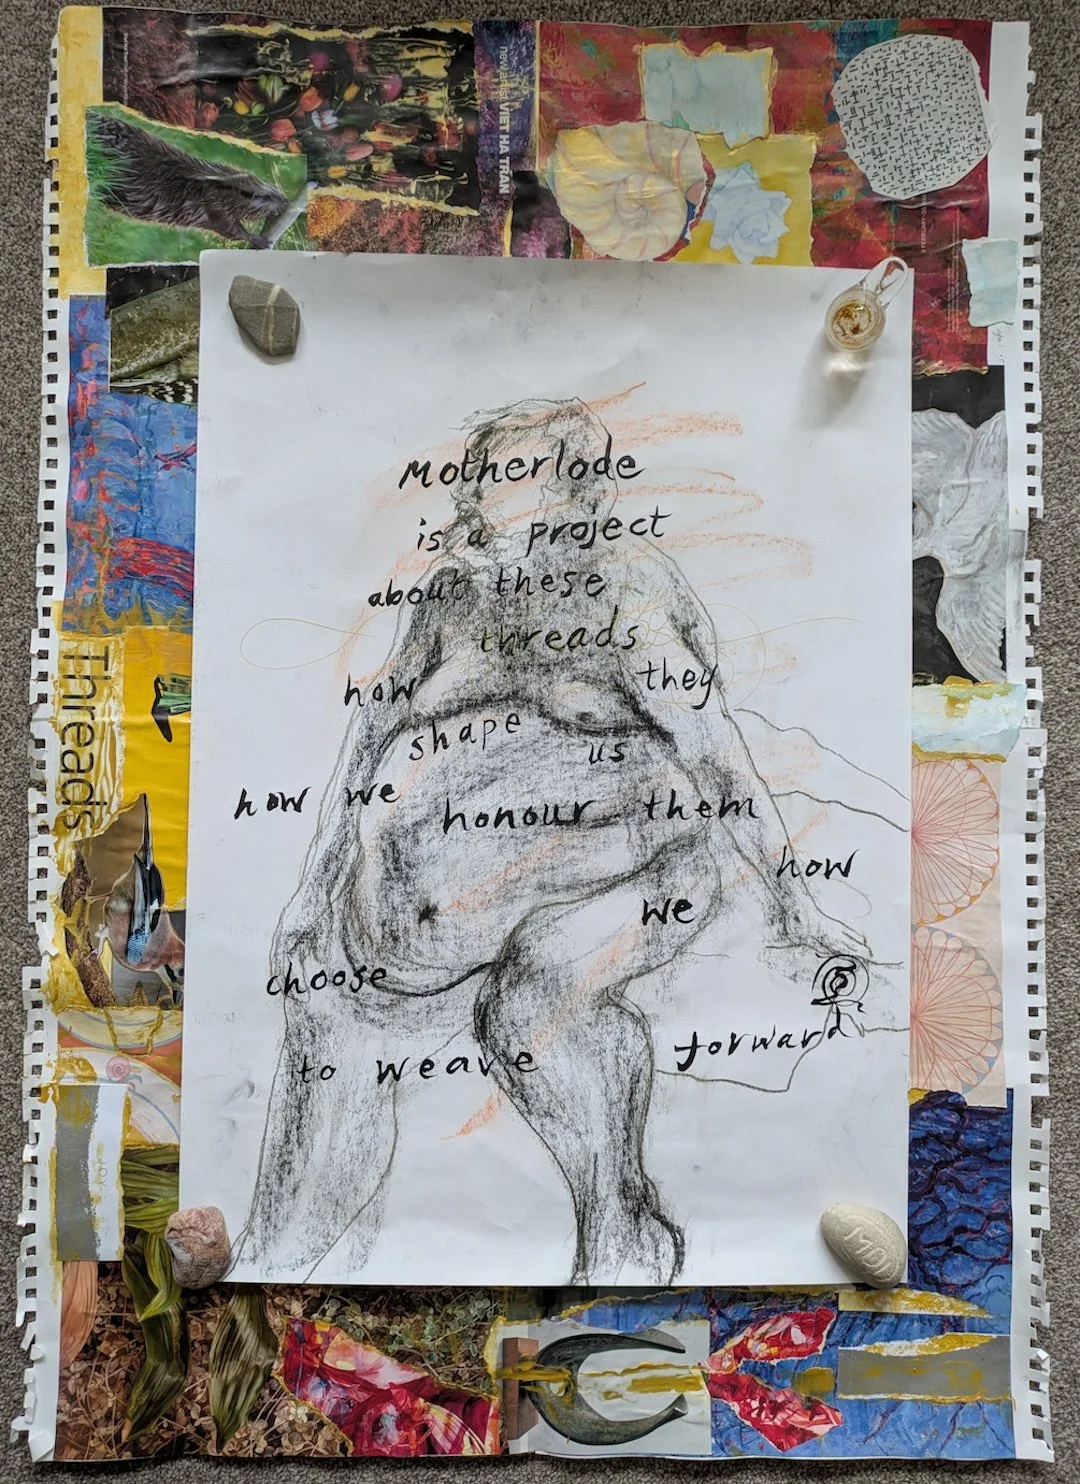 VIET HA TRAN
Motherlode
is a project
about these
threads
how they
shape us
how we honour them
how
we
choose
to weave forward
Threads
MOU